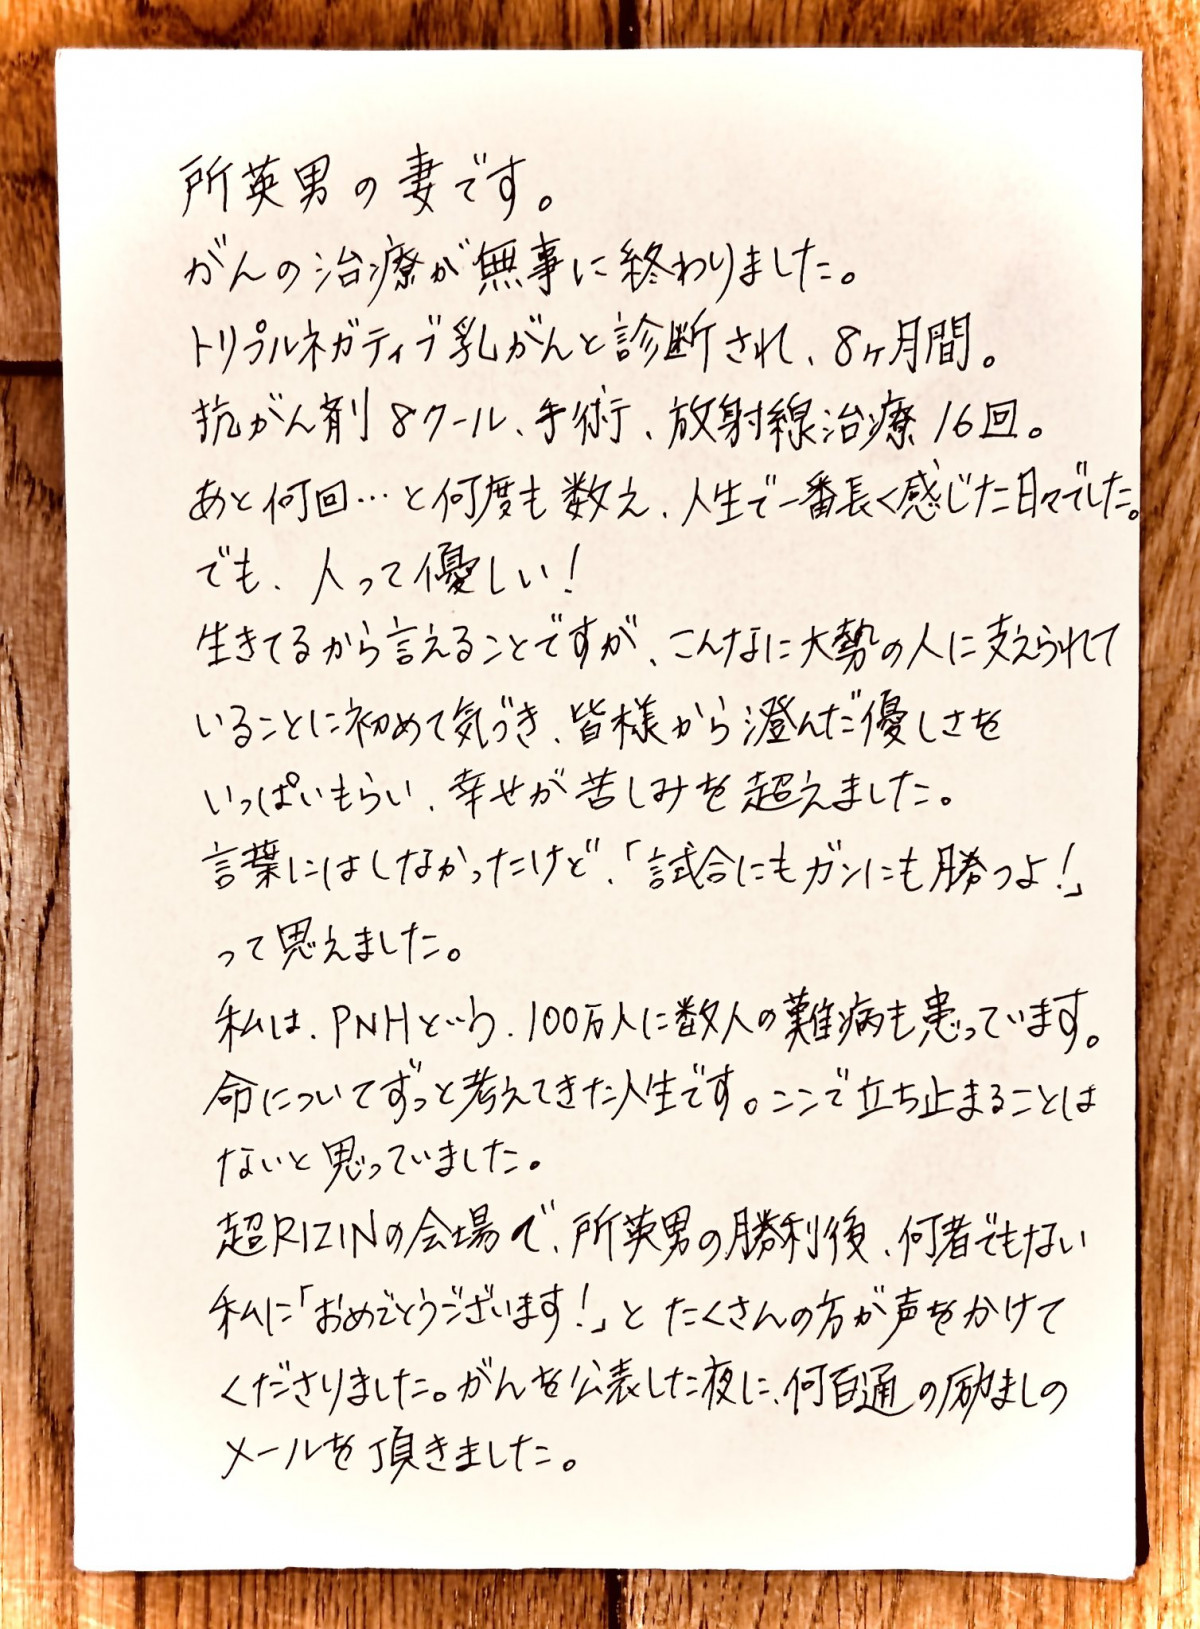 所英男の妻です。
がんの治療が無事に終わりました。
トリプルネガティブ乳がんと診断され、8ヶ月間。
抗がん剤8クール、手術、放射線治療16回。
あと何回…と何度も数え、人生で一番長く感じた日々でした。
でも、人って優しい!
生きてるから言えることですが、こんなに大勢の人に支えられて
いることに初めて気づき、皆様から澄んだ優しさを
いっぱいもらい、幸せが苦しみを超えました。
言葉にはしなかったけど、「試合にもガンにも勝つよ!」
って思えました。
私は、PNHという、100万人に数人の難病も患っています。
命についてずっと考えてきた人生です。ここで立ち止まることは
ないと思っていました。
超RIZINの会場で、所英男の勝利後、何者でもない
私に「おめでとうございます!」と たくさんの方が声をかけて
くださりました。がんを公表した夜に、何百通の励ましの
メールを頂きました。